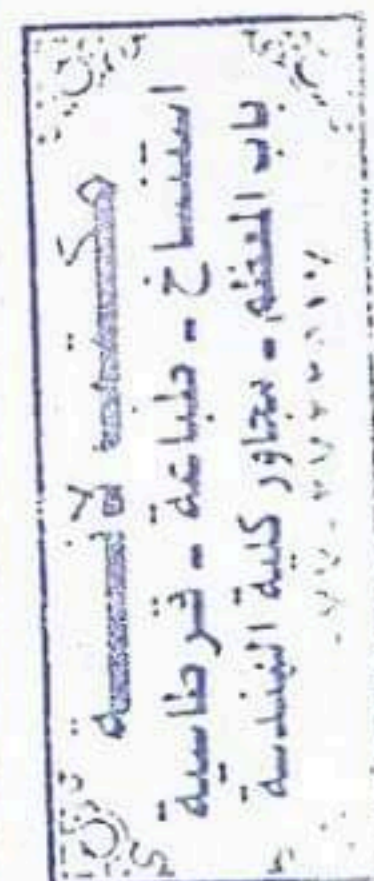 مكتب آنسة
استنساخ - طباعة - قرطاسية
باب المعظم - مجاور كلية الهندسة